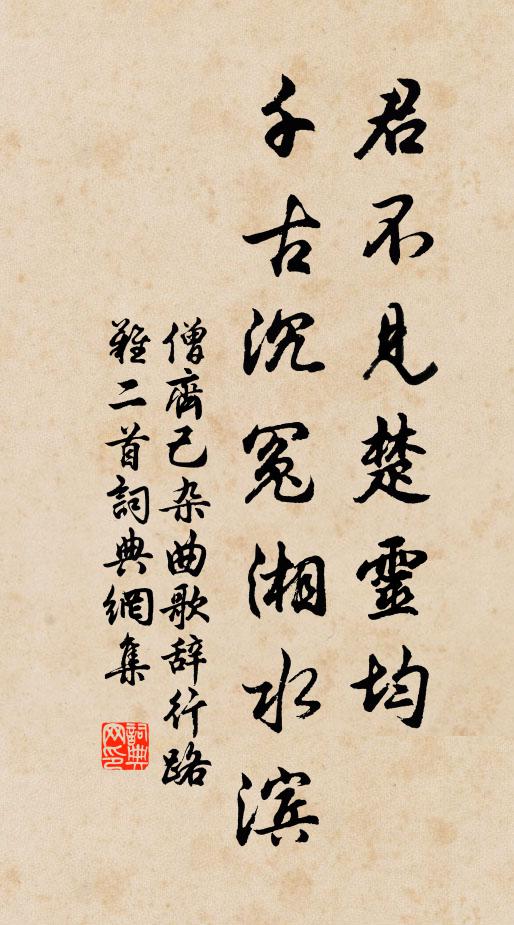 君不见楚靈均
千古沉冤湘水滨
僧齊己杂曲歌辞行路
難二首詞典網集
詞典网印